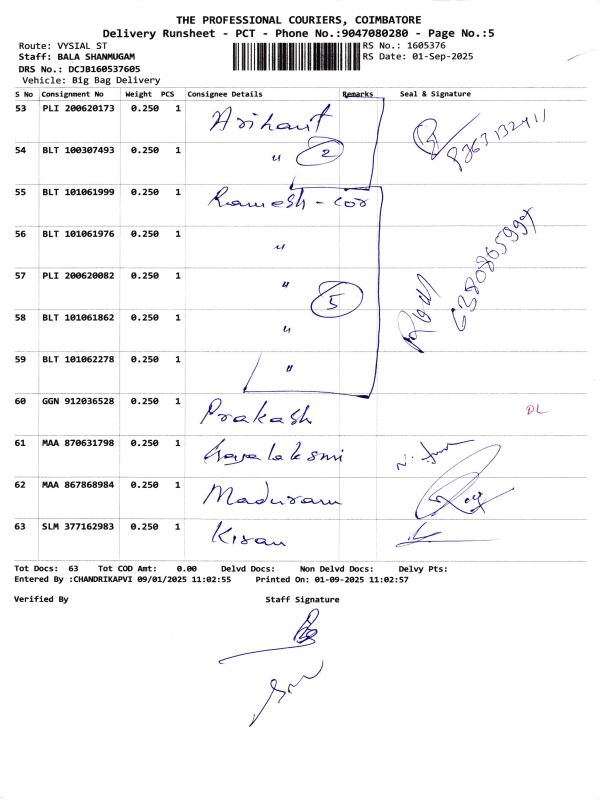 THE PROFESSIONAL COURIERS, COIMBATORE
Delivery Runsheet - PCT - Phone No.:9047080280 - Page No.:5
Route: VYSIAL ST RS No.: 1605376
Staff: BALA SHANMUGAM RS Date: 01-Sep-2025
DRS No.: DCJB160537605
Vehicle: Big Bag Delivery
S No Consignment No Weight PCS Consignee Details Remarks Seal & Signature
53 PLI 200620173 0.250 1 Arihant
54 BLT 100307493 0.250 1 " 2
55 BLT 101061999 0.250 1 Ramesh - cor
56 BLT 101061976 0.250 1 "
57 PLI 200620082 0.250 1 " 5
58 BLT 101061862 0.250 1 "
59 BLT 101062278 0.250 1 "
60 GGN 912036528 0.250 1 Prakash DL
61 MAA 870631798 0.250 1
62 MAA 867868984 0.250 1 Maduram
63 SLM 377162983 0.250 1 Kiran
Tot Docs: 63 Tot COD Amt: 0.00 Delvd Docs: Non Delvd Docs: Delvy Pts:
Entered By :CHANDRIKAPVI 09/01/2025 11:02:55 Printed On: 01-09-2025 11:02:57
Verified By Staff Signature